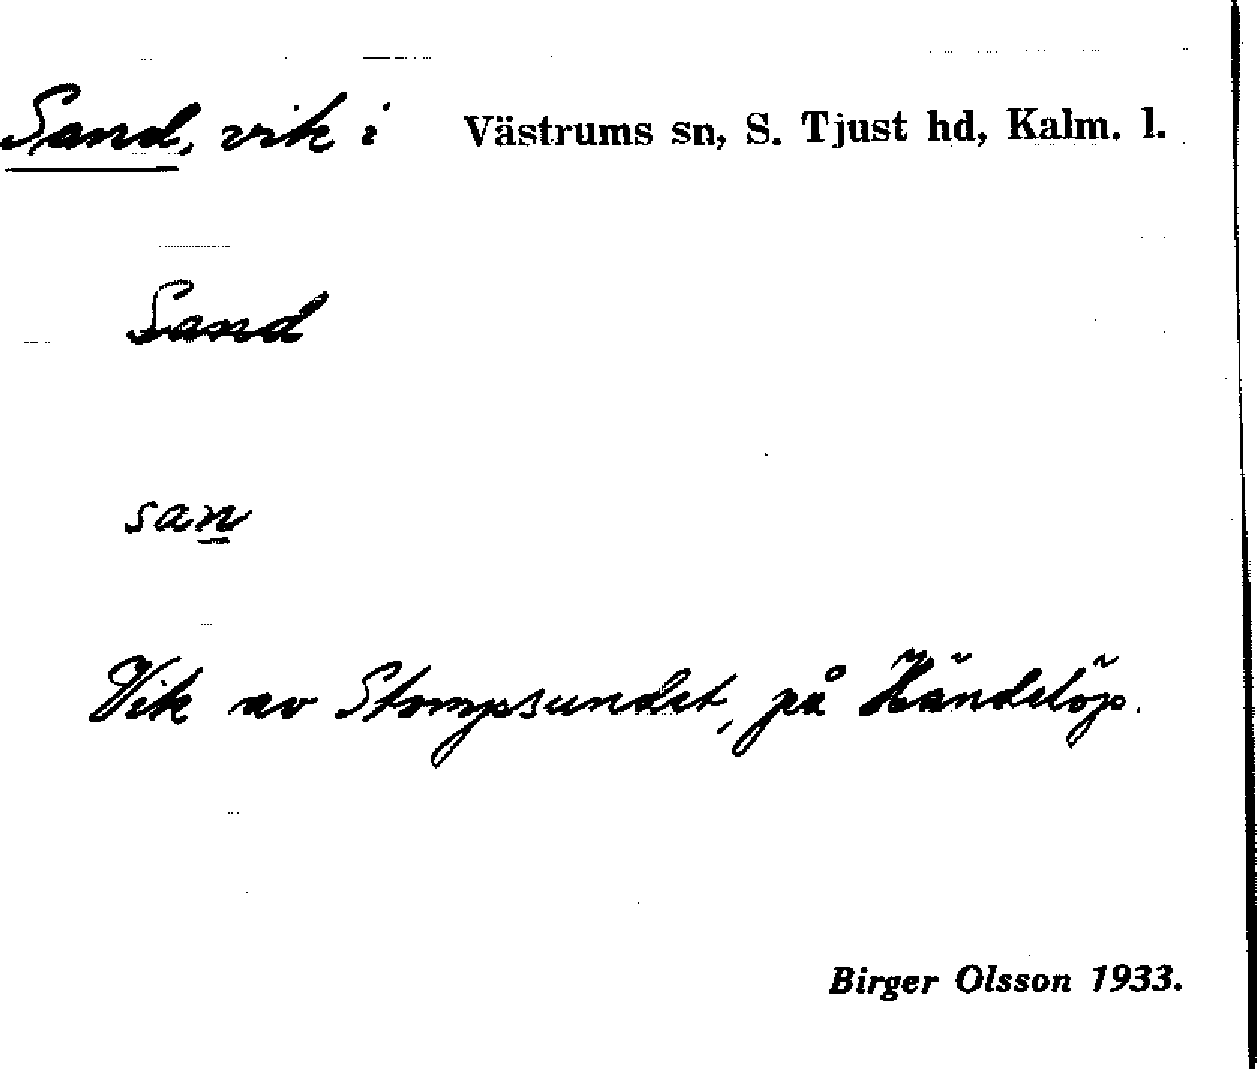 Sand, vik i Västrums sn, S. Tjust hd, Kalm. l.
Sand
san
Vik av Stompsundet, på Händelöp.
Birger Olsson 1933.